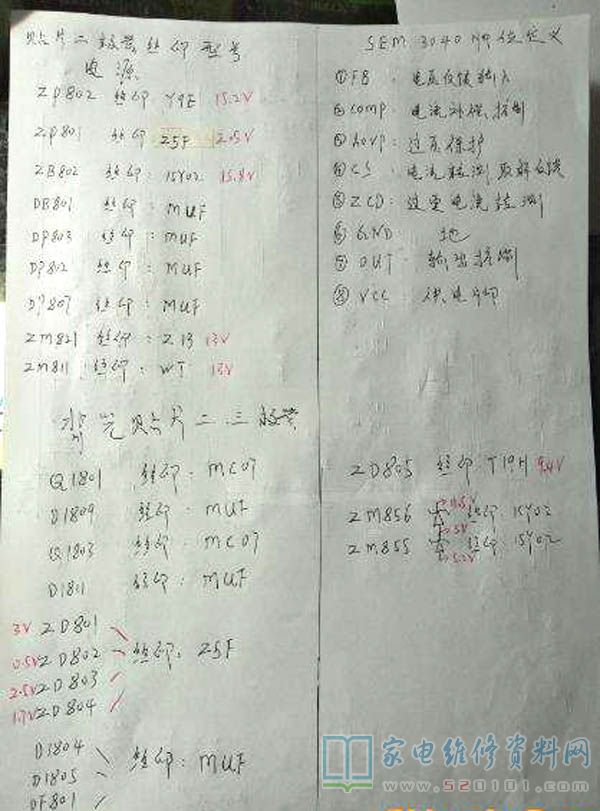 贴片二极管丝印型号
电源
ZP802 丝印 Y9E 15.2V
ZP801 丝印 Z5F 2.5V
ZB802 丝印: 15Y02 15.8V
DB801 丝印: MUF
DP803 丝印: MUF
DP802 丝印: MUF
DP807 丝印: MUF
ZM821 丝印: Z13 13V
ZM811 丝印: WT 13V
背光贴片二.三极管
Q1801 丝印: MC07
D1809 丝印: MUF
Q1803 丝印: MC07
D1811 丝印: MUF
3V ZD801
0.5V ZD802 丝印: Z5F
2.5V ZD803
1.7V ZD804
D1804
D1805 丝印: MUF
DF801
SEM 3040 脚位定义
①FB: 电压反馈输入
②COMP: 电流补偿.控制
③AOVP: 过压保护
④CS: 电流检测取样反馈
⑤ZCD: 过零电流检测
⑥GND 地
⑦OUT: 输出控制
⑧VCC: 供电脚
ZD805 丝印: Y19H
ZM856 丝印: 15Y02
ZM855 丝印: 15Y02
5.2V
家电维修资料网
www.520101.com